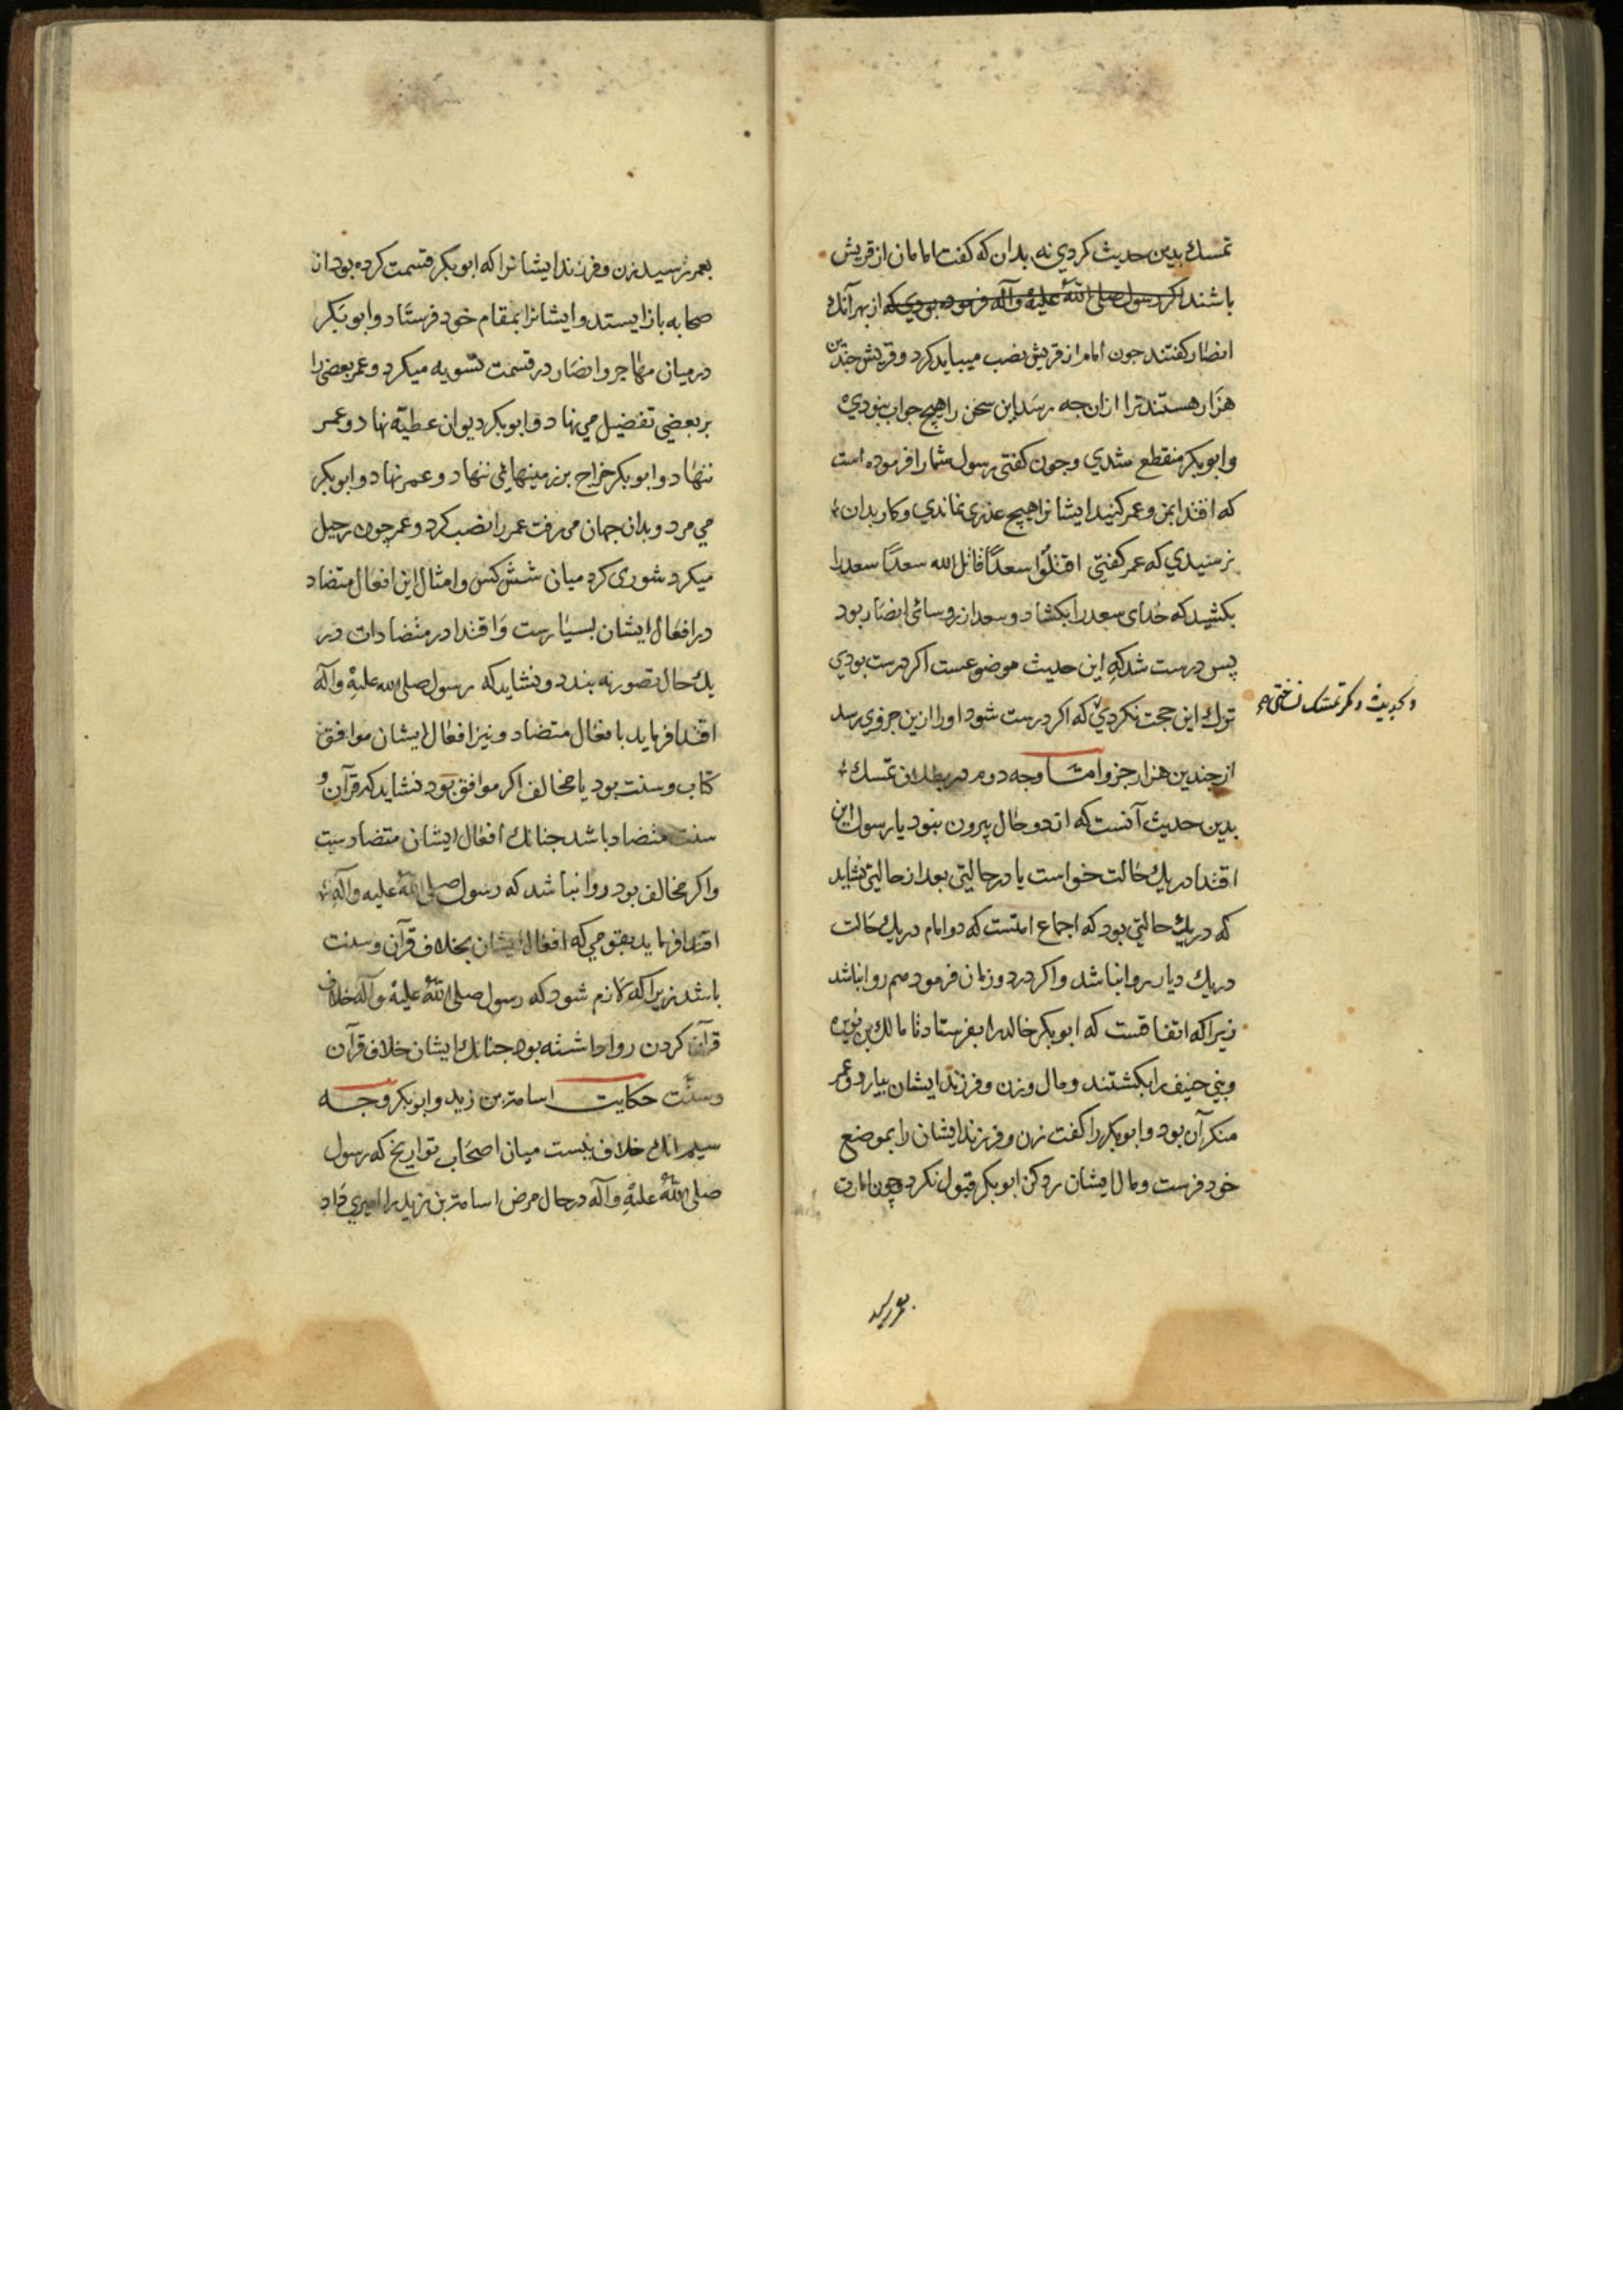 تمسك بدين حديث كردي نه بدان كه كفت امامان از قريش
باشند اكر رسول صلى الله عليه وآله فرموده بودي كه از بهر آنك
انصار كفتند جون امام از قريش نصب ميبايد كرد و قريش جندين
هزار هستند ترا از ان جه رسد اين سخن را هيچ جواب نبودي
وابو بكر منقطع شدي وجون كفتى رسول شما را فرموده است
كه اقتدا بمن و عمر كنيد ايشانرا هيچ عذرى نماندي وكار بدان
نرسيدي كه عمر كفتي اقتلوا سعدًا قاتل الله سعدًا سعد را
بكشيد كه خداى سعد را بكشاد و سعد از روسائ انصار بود
پس درست شد كه اين حديث موضوعست اكر درست بودي
ترك اين حجت نكردي كه اكر درست شود او را ازين جزوي رسد
و بحديث دكر تمسك نساختى
از جندين هزار جزو امّا وجه دوم در بطلان تمسك
بدين حديث آنست كه از دو حال بيرون نبود يا رسول اين
اقتدا در يك حالت خواست يا در حالتي بعد از حالتي نشايد
كه در يك حالتي بود كه اجماع امتست كه دو امام در يك حالت
در يك ديار روا نباشد واكر در دو زمان فرمود هم روا نباشد
زيرا كه اتفاقست كه ابو بكر خالد را بفرستاد تا مالك بن نويره
وبني حنيفه را بكشتند ومال وزن وفرزند ايشان بيارد وعمر
منكر آن بود وابو بكر را كفت زن وفرزند ايشان را بموضع
خود فرست ومال ايشان رد كن ابو بكر قبول نكرد وچون امارت
بعمر رسيد
بعمر رسيد زن وفرزند ايشانرا كه ابو بكر قسمت كرده بود از
صحابه باز ايستد وايشانرا بمقام خود فرستاد وابو بكر
در ميان مهاجر وانصار در قسمت تسويه ميكرد وعمر بعضى را
بر بعضي تفضيل مي نهاد وابو بكر ديوان عطيّه نهاد وعمر
ننهاد وابو بكر خراج بر زمينها نمى ننهاد وعمر نهاد وابو بكر
مي مرد وبدان جهان مى رفت عمر را نصب كرد وعمر چون رحيل
ميكرد شورى كرد ميان شش كس وامثال اين افعال متضاد
در افعال ايشان بسيارست واقتدا در متضادات در
يك حال تصور نه بندد ونشايد كه رسول صلى الله عليه وآله
اقتدا فرمايد بافعال متضاد ونيز افعال ايشان موافق
كتاب وسنت بود يا مخالف اكر موافق بود نشايد كه قرآن و
سنت متضاد باشد جنانك افعال ايشان متضادست
واكر مخالف بود روا نباشد كه رسول صلى الله عليه وآله
اقتدا فرمايد بقومي كه افعال ايشان بخلاف قرآن وسنت
باشد زيرا كه لازم شود كه رسول صلى الله عليه وآله خلاف
قرآن كردن روا داشته بود جنانك ايشان خلاف قرآن
وسنّت حكايت اسامة بن زيد وابو بكر وجه
سيم انك خلاف نيست ميان اصحاب تواريخ كه رسول
صلى الله عليه وآله در حال مرض اسامة بن زيد را اميري داد